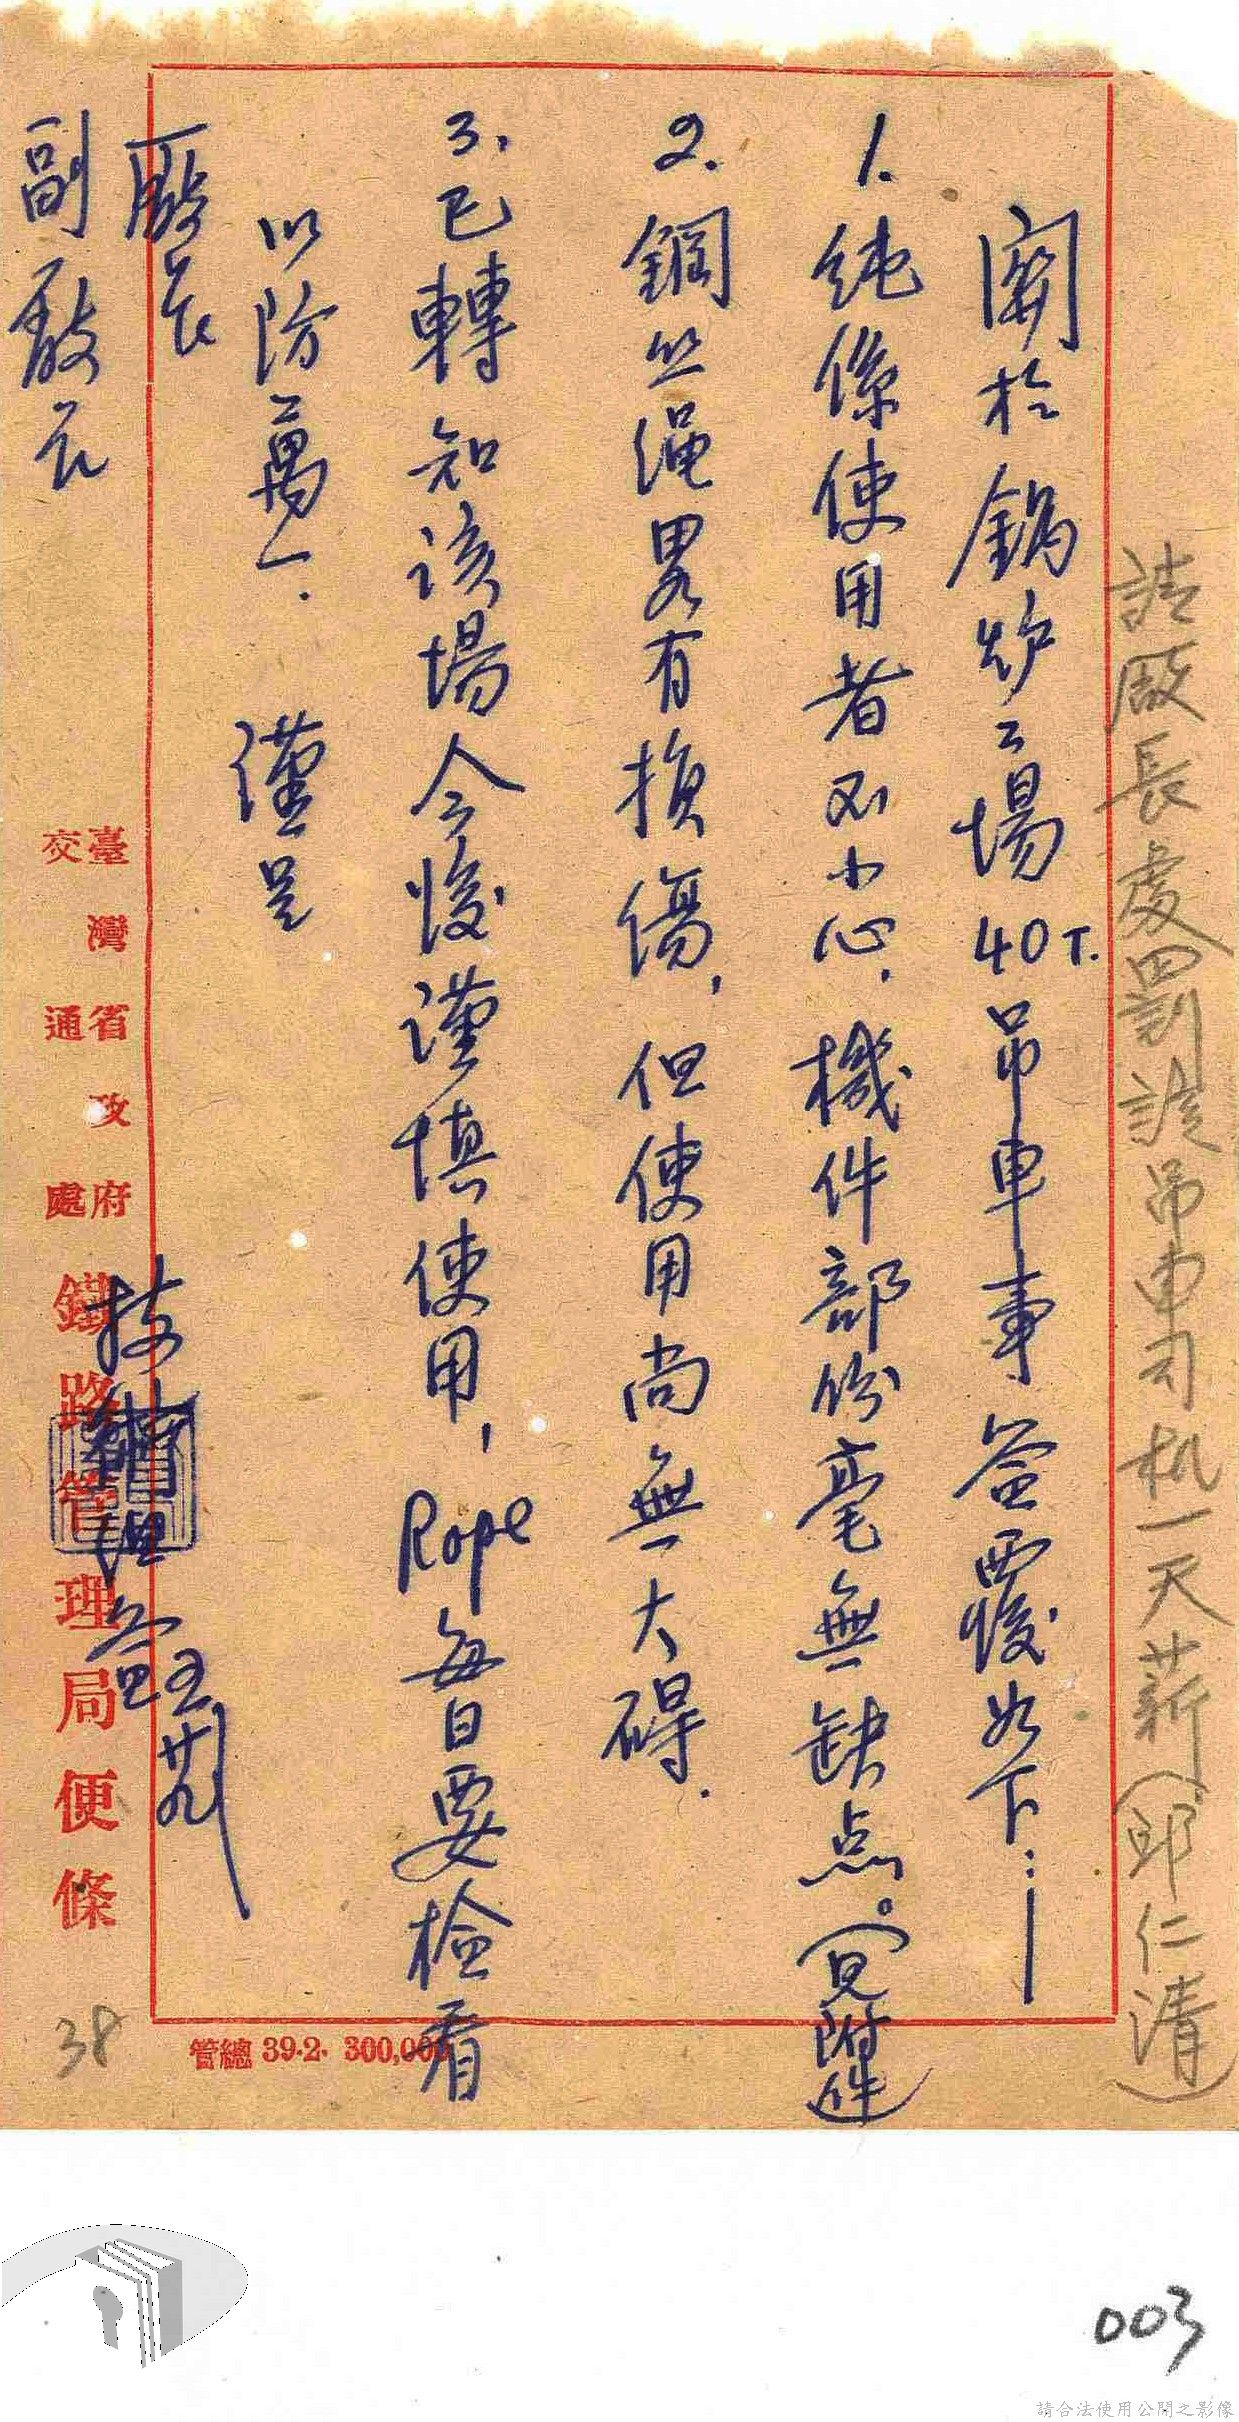 請廠長處罰該吊車司机一天薪(邱仁清)
關於鍋炉工場40T.吊車事簽覆如下:—
1.純係使用者不小心,機件部份毫無缺点。(見附件)
2.鋼丝绳畧有損傷,但使用尚無大碍.
3.已轉知該場今後謹慎使用,Rope每日要检看
以防萬一. 謹呈
廠長
副廠長
臺灣省政府
交通處
鐵路管理局便條
管總 39.2. 300,00
38
003
請合法使用公開之影像